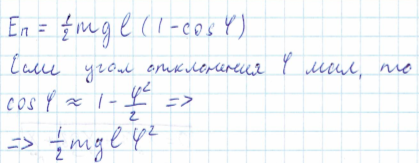 Eп = ½ mgl (1-cosφ)
Если угол отклонения φ мал, то
cosφ ≈ 1 - φ²/2 =>
=> ½ mgl φ²